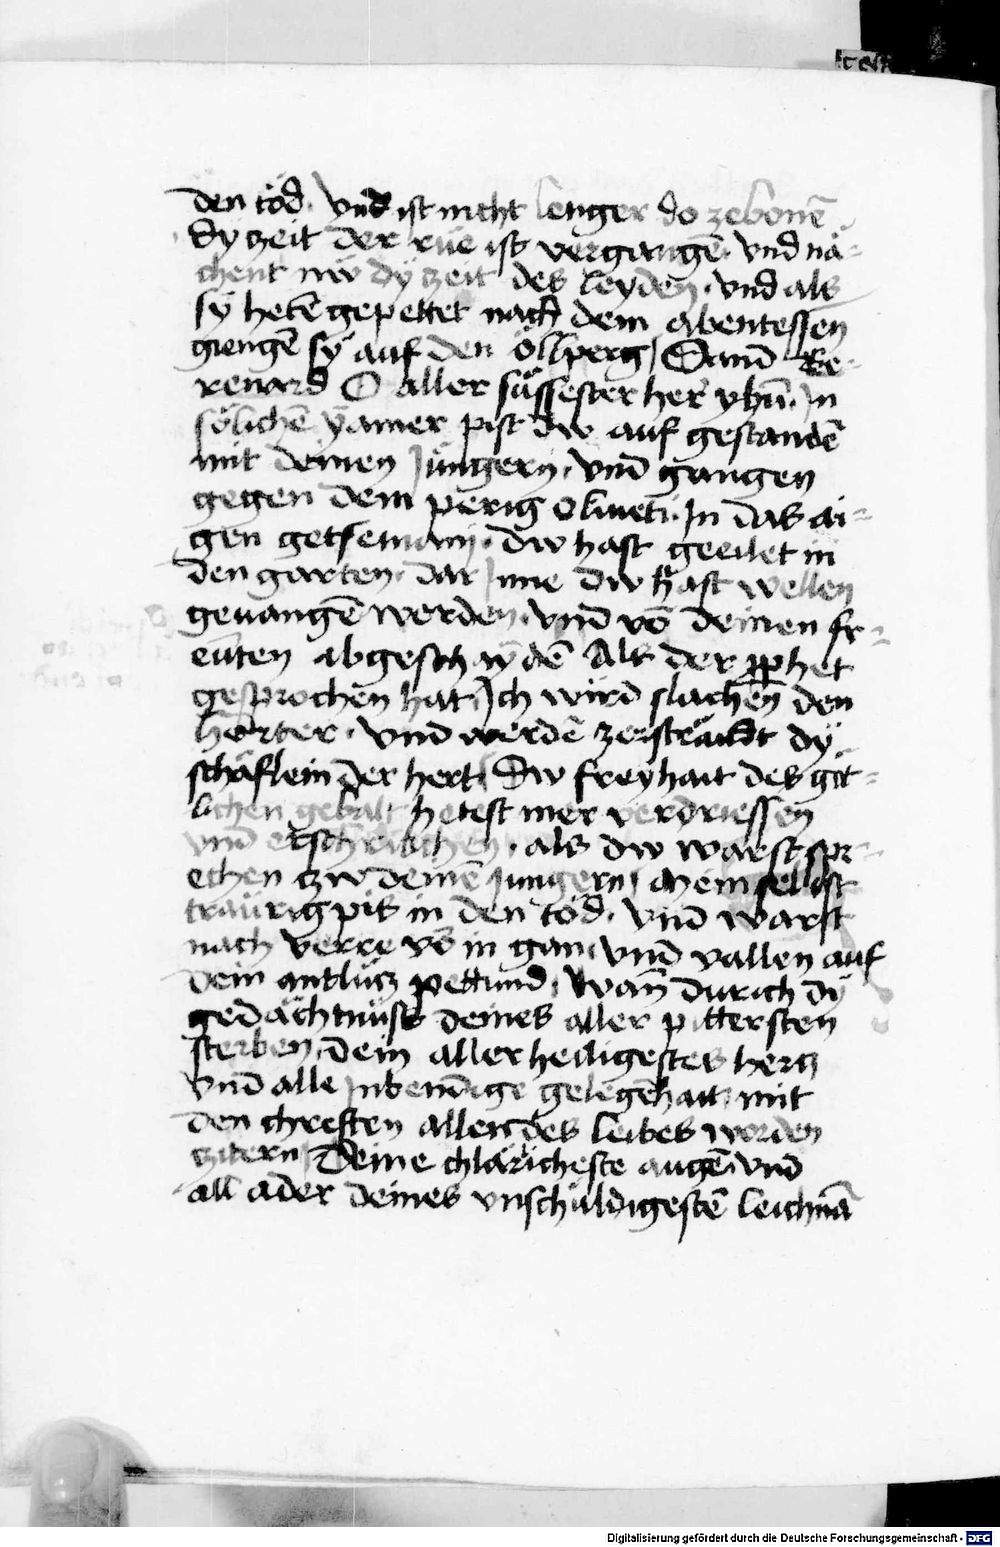 den töd. vnd ist nicht lenger do zebonē
dÿ zeit der rüe ist vergangē. vnd nä-
chent nw dÿ zeit des leyden. vnd als
sÿ hetē gepettet nach dem abentessen
giengē sÿ auf den öllperg Sand Be-
renard O aller süssester her yhū. In
sölichē ÿamer pist dw auf gestandē
mit deinen Jüngern. vnd gangen
gegen dem perig oliueti. In das ai-
gen getsemani. dw hast geeilet in
den garten. dar Inne dw hast wellen
geuangē werden. vnd vō deinen fr-
eüten abgeschaÿdē Als der pphet
gesprochen hat. Ich wird slachen den
herter. vnd werdē zersträdt dÿ
schäflein der hert. Dw freyhait des göt-
lichen gebalt hetest mer verdriessen
vnd erschrikchen. als dw warst spr-
echen czw deinē Jungern Mein sell ist
träurig pis in den töd. vnd warst
nach verre vō in gan. vnd vallen auf
dein antlücz pettund. wan̄ durich dÿ
gedächtnüss deines aller pittersten
sterben. dein allerheiligestes hercz
vnd alle Inbendige gelēgēhait mit
den chreften allen des leibes worden
czitern Deine chläricheste augē. vnd
all ader deines vnschuldigestē leichnā
Digitalisierung gefördert durch die Deutsche Forschungsgemeinschaft - DFG